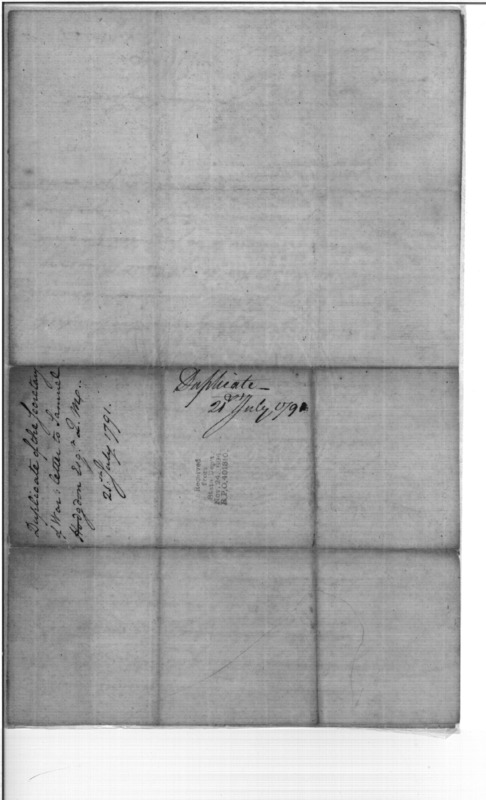 Duplicate of the Secretary
of War's letter to Samuel
Hodgdon Esqr. Q. Mr.
21st July, 1791.
Duplicate
21st July 1791
Received
from